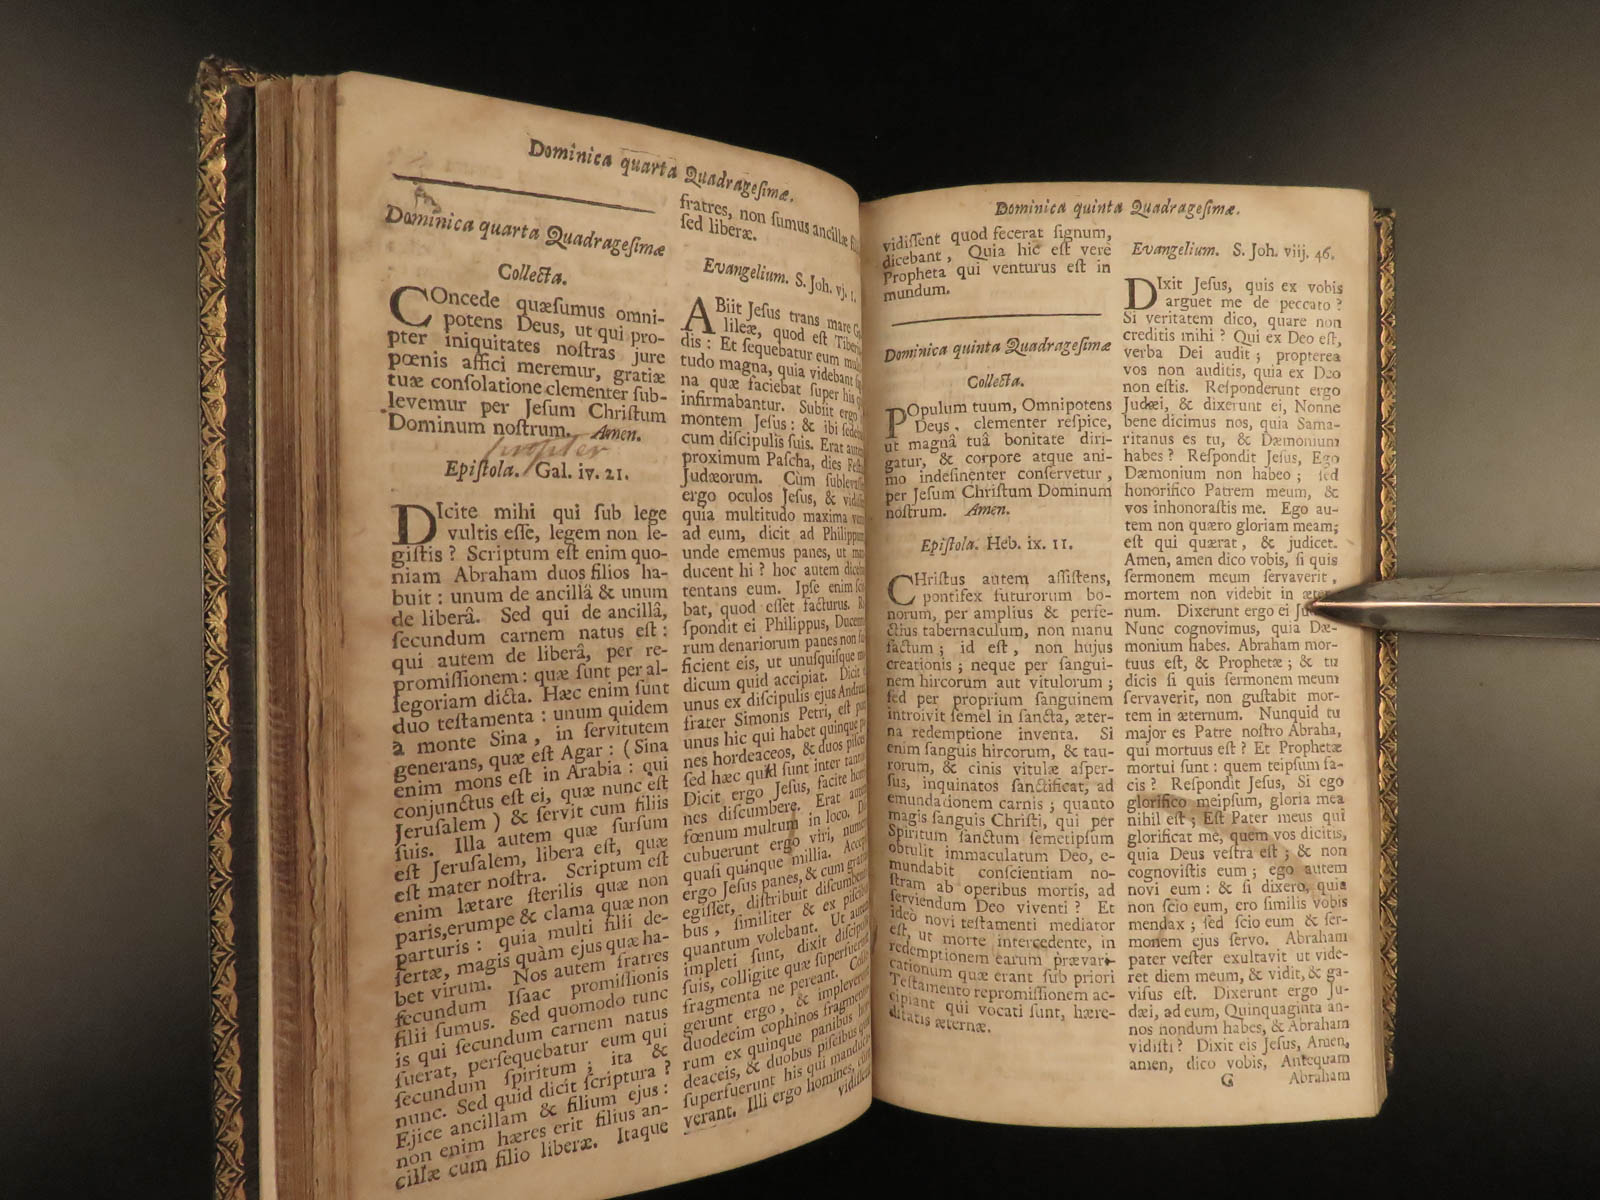 Dominica quarta Quadragesimæ.
Dominica quarta Quadragesimæ
Collecta.
COncede quæsumus omni-
potens Deus, ut qui pro-
pter iniquitates nostras jure
pœnis affici meremur, gratiæ
tuæ consolatione clementer sub-
levemur per Jesum Christum
Dominum nostrum. Amen.
Epistola. Gal. iv. 21.
DIcite mihi qui sub lege
vultis esse, legem non le-
gistis ? Scriptum est enim quo-
niam Abraham duos filios ha-
buit : unum de ancillâ & unum
de liberâ. Sed qui de ancillâ,
secundum carnem natus est :
qui autem de liberâ, per re-
promissionem : quæ sunt per al-
legoriam dicta. Hæc enim sunt
duo testamenta : unum quidem
à monte Sina, in servitutem
generans, quæ est Agar : (Sina
enim mons est in Arabia : qui
conjunctus est ei, quæ nunc est
Jerusalem) & servit cum filiis
suis. Illa autem quæ sursum
est Jerusalem, libera est, quæ
est mater nostra. Scriptum est
enim lætare sterilis quæ non
paris, erumpe & clama quæ non
parturis : quia multi filii de-
sertæ, magis quàm ejus quæ ha-
bet virum. Nos autem fratres
secundum Isaac promissionis
filii sumus. Sed quomodo tunc
is qui secundum carnem natus
fuerat, persequebatur eum qui
secundum spiritum ; ita &
nunc. Sed quid dicit scriptura ?
Ejice ancillam & filium ejus :
non enim hæres erit filius an-
cillæ cum filio liberæ. Itaque
fratres, non sumus ancillæ
sed liberæ.
Evangelium. S. Joh. vj. 1.
ABiit Jesus trans mare
lileæ, quod est
dis : Et sequebatur eum
tudo magna, quia videbant
na quæ faciebat super his
infirmabantur. Subiit ergo
montem Jesus : & ibi
cum discipulis suis. Erat
proximum Pascha, dies
Judæorum. Cùm
ergo oculos Jesus, &
quia multitudo maxima
ad eum, dicit ad
unde ememus panes, ut
ducent hi ? hoc autem
tentans eum. Ipse enim
bat, quod esset facturus.
spondit ei Philippus,
rum denariorum panes non
ficient eis, ut unusquisque
dicum quid accipiat. Dicit
unus ex discipulis ejus
frater Simonis Petri, est
unus hic qui habet quinque
nes hordeaceos, & duos
sed hæc quid sunt inter
Dicit ergo Jesus, facite
nes discumbere. Erat
fœnum multum in loco.
cubuerunt ergo viri,
quasi quinque millia.
ergo Jesus panes, & cum
egisset, distribuit
bus, similiter & ex
quantum volebant. Ut
impleti sunt, dixit
suis, colligite quæ
fragmenta ne pereant.
gerunt ergo, &
duodecim cophinos
rum ex quinque panibus
deaceis, & duobus piscibus
superfuerunt his qui
verant. Illi ergo homines,
vidissent
Dominica quinta Quadragesimæ.
vidissent quod fecerat signum,
dicebant, Quia hic est verè
Propheta qui venturus est in
mundum.
Dominica quinta Quadragesimæ
Collecta.
POpulum tuum, Omnipotens
Deus, clementer respice,
ut magnâ tuâ bonitate diri-
gatur, & corpore atque ani-
mo indesinenter conservetur,
per Jesum Christum Dominum
nostrum. Amen.
Epistola. Heb. ix. 11.
CHristus autem assistens,
pontifex futurorum bo-
norum, per amplius & perfe-
ctius tabernaculum, non manu
factum ; id est, non hujus
creationis ; neque per sangui-
nem hircorum aut vitulorum ;
sed per proprium sanguinem
introivit semel in sancta, æter-
na redemptione inventa. Si
enim sanguis hircorum, & tau-
rorum, & cinis vitulæ asper-
sus, inquinatos sanctificat, ad
emundationem carnis ; quanto
magis sanguis Christi, qui per
Spiritum sanctum semetipsum
obtulit immaculatum Deo, e-
mundabit conscientiam no-
stram ab operibus mortis, ad
serviendum Deo viventi ? Et
ideo novi testamenti mediator
est, ut morte intercedente, in
redemptionem earum prævari-
cationum quæ erant sub priori
Testamento repromissionem ac-
cipiant qui vocati sunt, hære-
ditatis æternæ.
Evangelium. S. Joh. viij. 46.
DIxit Jesus, quis ex vobis
arguet me de peccato ?
Si veritatem dico, quare non
creditis mihi ? Qui ex Deo est,
verba Dei audit ; propterea
vos non auditis, quia ex Deo
non estis. Responderunt ergo
Judæi, & dixerunt ei, Nonne
bene dicimus nos, quia Sama-
ritanus es tu, & Dæmonium
habes ? Respondit Jesus, Ego
Dæmonium non habeo ; sed
honorifico Patrem meum, &
vos inhonorastis me. Ego au-
tem non quæro gloriam meam;
est qui quærat, & judicet.
Amen, amen dico vobis, si quis
sermonem meum servaverit,
mortem non videbit in
num. Dixerunt ergo ei
Nunc cognovimus, quia Dæ-
monium habes. Abraham mor-
tuus est, & Prophetæ ; & tu
dicis si quis sermonem meum
servaverit, non gustabit mor-
tem in æternum. Nunquid tu
major es Patre nostro Abraha,
qui mortuus est ? Et Prophetæ
mortui sunt : quem teipsum fa-
cis ? Respondit Jesus, Si ego
glorifico meipsum, gloria mea
nihil est ; Est Pater meus qui
glorificat me, quem vos dicitis,
quia Deus vestra est ; & non
cognovistis eum ; ego autem
novi eum : & si dixero, quia
non scio eum, ero similis vobis
mendax ; sed scio eum & ser-
monem ejus servo. Abraham
pater vester exultavit ut vide-
ret diem meum, & vidit, & ga-
visus est. Dixerunt ergo Ju-
dæi, ad eum, Quinquaginta an-
nos nondum habes, & Abraham
vidisti ? Dixit eis Jesus, Amen,
amen, dico vobis, Antequam
G Abraham